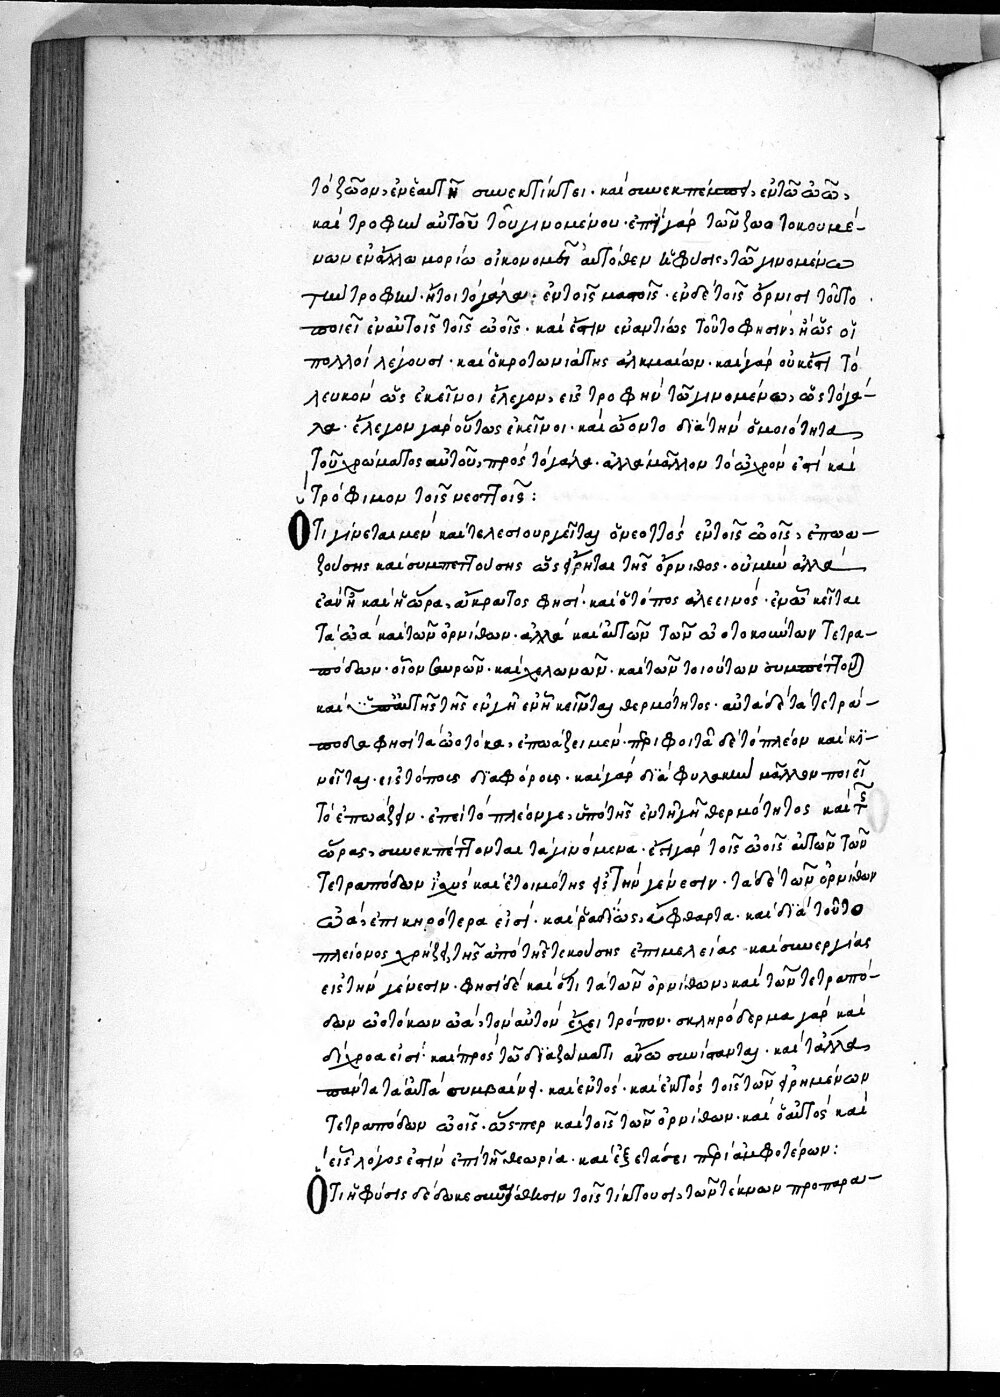 τὸ ζῶον, ἐν ἑαυτῆ συνεκτίκτει· καὶ συνεκπέμπει, ἐν τῶ ὠῶ,
καὶ τροφὴν αὐτοῦ τοῦ γινομένου· ἐπὶ γὰρ τῶν ζωοτοκουμέ-
νων ἐν ἄλλω μορίω οἰκονομεῖ αὐτόθεν ἡ φύσις, τῶ γινομένω
τὴν τροφὴν· ἤτοι τὸ γάλα· ἐν τοῖς μαστοῖς· ἐν δὲ τοῖς ὄρνισι τοῦτο
ποιεῖ ἐν αὐτοῖς τοῖς ὠοῖς· καὶ ἔστιν ἐναντίως τοῦτο φησὶν, ἢ ὡς οἱ
πολλοὶ λέγουσι· καὶ ὁ κροτωνιάτης ἀλκμαίων· καὶ γὰρ οὐκ ἔστι τὸ
λευκὸν ὡς ἐκεῖνοι ἔλεγον, εἰς τροφὴν τῶ γινομένω, ὡς τὸ γά-
λα· ἔλεγον γὰρ οὕτως ἐκεῖνοι· καὶ ὤοντο διὰ τὴν ὁμοιότητα
τοῦ χρώματος αὐτοῦ, πρὸς τὸ γάλα· ἀλλὰ μᾶλλον τὸ ὠχρόν ἐστι καὶ
τρόφιμον τοῖς νεοττοῖς:
Ὅτι γίνεται μὲν καὶ τελεσιουργεῖται ὁ νεοττὸς ἐν τοῖς ὠοῖς, ἐπωα-
ζούσης καὶ συμπεττούσης ὡς εἴρηται τῆς ὄρνιθος· οὐ μὴν ἀλλὰ
ἐὰν ἦ καὶ ἡ ὥρα, εὔκρατος φησί· καὶ ὁ τόπος ἀλεεινὸς· ἐν ὧ κεῖται
τὰ ὠὰ καὶ τῶν ὀρνίθων· ἀλλὰ καὶ αὐτῶν τῶν ὠοτοκούντων τετρα-
πόδων· οἷον σαυρῶν· καὶ χελωνῶν· καὶ τῶν τοιούτων συμπέττονται
καὶ ὑπ' αὐτῆς τῆς ἐν γῆ ἐν ἧ κεῖνται θερμότητος· αὐτὰ δὲ τὰ τετρά-
ποδα φησὶ τὰ ὠοτόκα, ἐπωάζει μὲν· περιφοιτᾶ δὲ τὸ πλέον καὶ κι-
νεῖται· εἰς τόπους διαφόρους· καὶ γὰρ διὰ φυλακὴν μᾶλλον ποιεῖ
τὸ ἐπωάζειν· ἐπεὶ τὸ πλέον γε, ὑπὸ τῆς ἐν τῆ γῆ θερμότητος καὶ τῆς
ὥρας, συνεκπέττονται τὰ γινόμενα· ἔστι γὰρ τοῖς ὠοῖς αὐτῶν τῶν
τετραπόδων ἰσχὺς καὶ ἑτοιμότης εἰς τὴν γένεσιν· τὰ δὲ τῶν ὀρνίθων
ὠὰ, ἐπικηρότερα εἰσί· καὶ ῥαδίως, εὔφθαρτα· καὶ διὰ τοῦτο
πλείονος χρήζει τῆς ἀπὸ τῆς τεκούσης ἐπιμελείας· καὶ συνεργίας
εἰς τὴν γένεσιν· φησὶ δὲ καὶ ὅτι τὰ τῶν ὀρνίθων, καὶ τῶν τετραπό-
δων ὠοτόκων ὠὰ, τὸν αὐτὸν ἔχει τρόπον· σκληρόδερμα γὰρ καὶ
δίχροα εἰσί· καὶ πρὸς τῶ διαζώματι ἄνω συνίστανται· καὶ τἄλλα
πάντα ταῦτὰ συμβαίνει· καὶ ἐντὸς· καὶ ἐκτὸς τοῖς τῶν εἰρημένων
τετραπόδων ὠοῖς· ὥσπερ καὶ τοῖς τῶν ὀρνίθων· καὶ ὁ αὐτὸς καὶ
εἷς λόγος ἐστὶν ἐπὶ τῆ θεωρία· καὶ ἐξετάσει περὶ ἀμφοτέρων:
Ὅτι ἡ φύσις δέδωκε συναίσθησιν τοῖς τίκτουσι, τῶν τέκνων προπαρα-